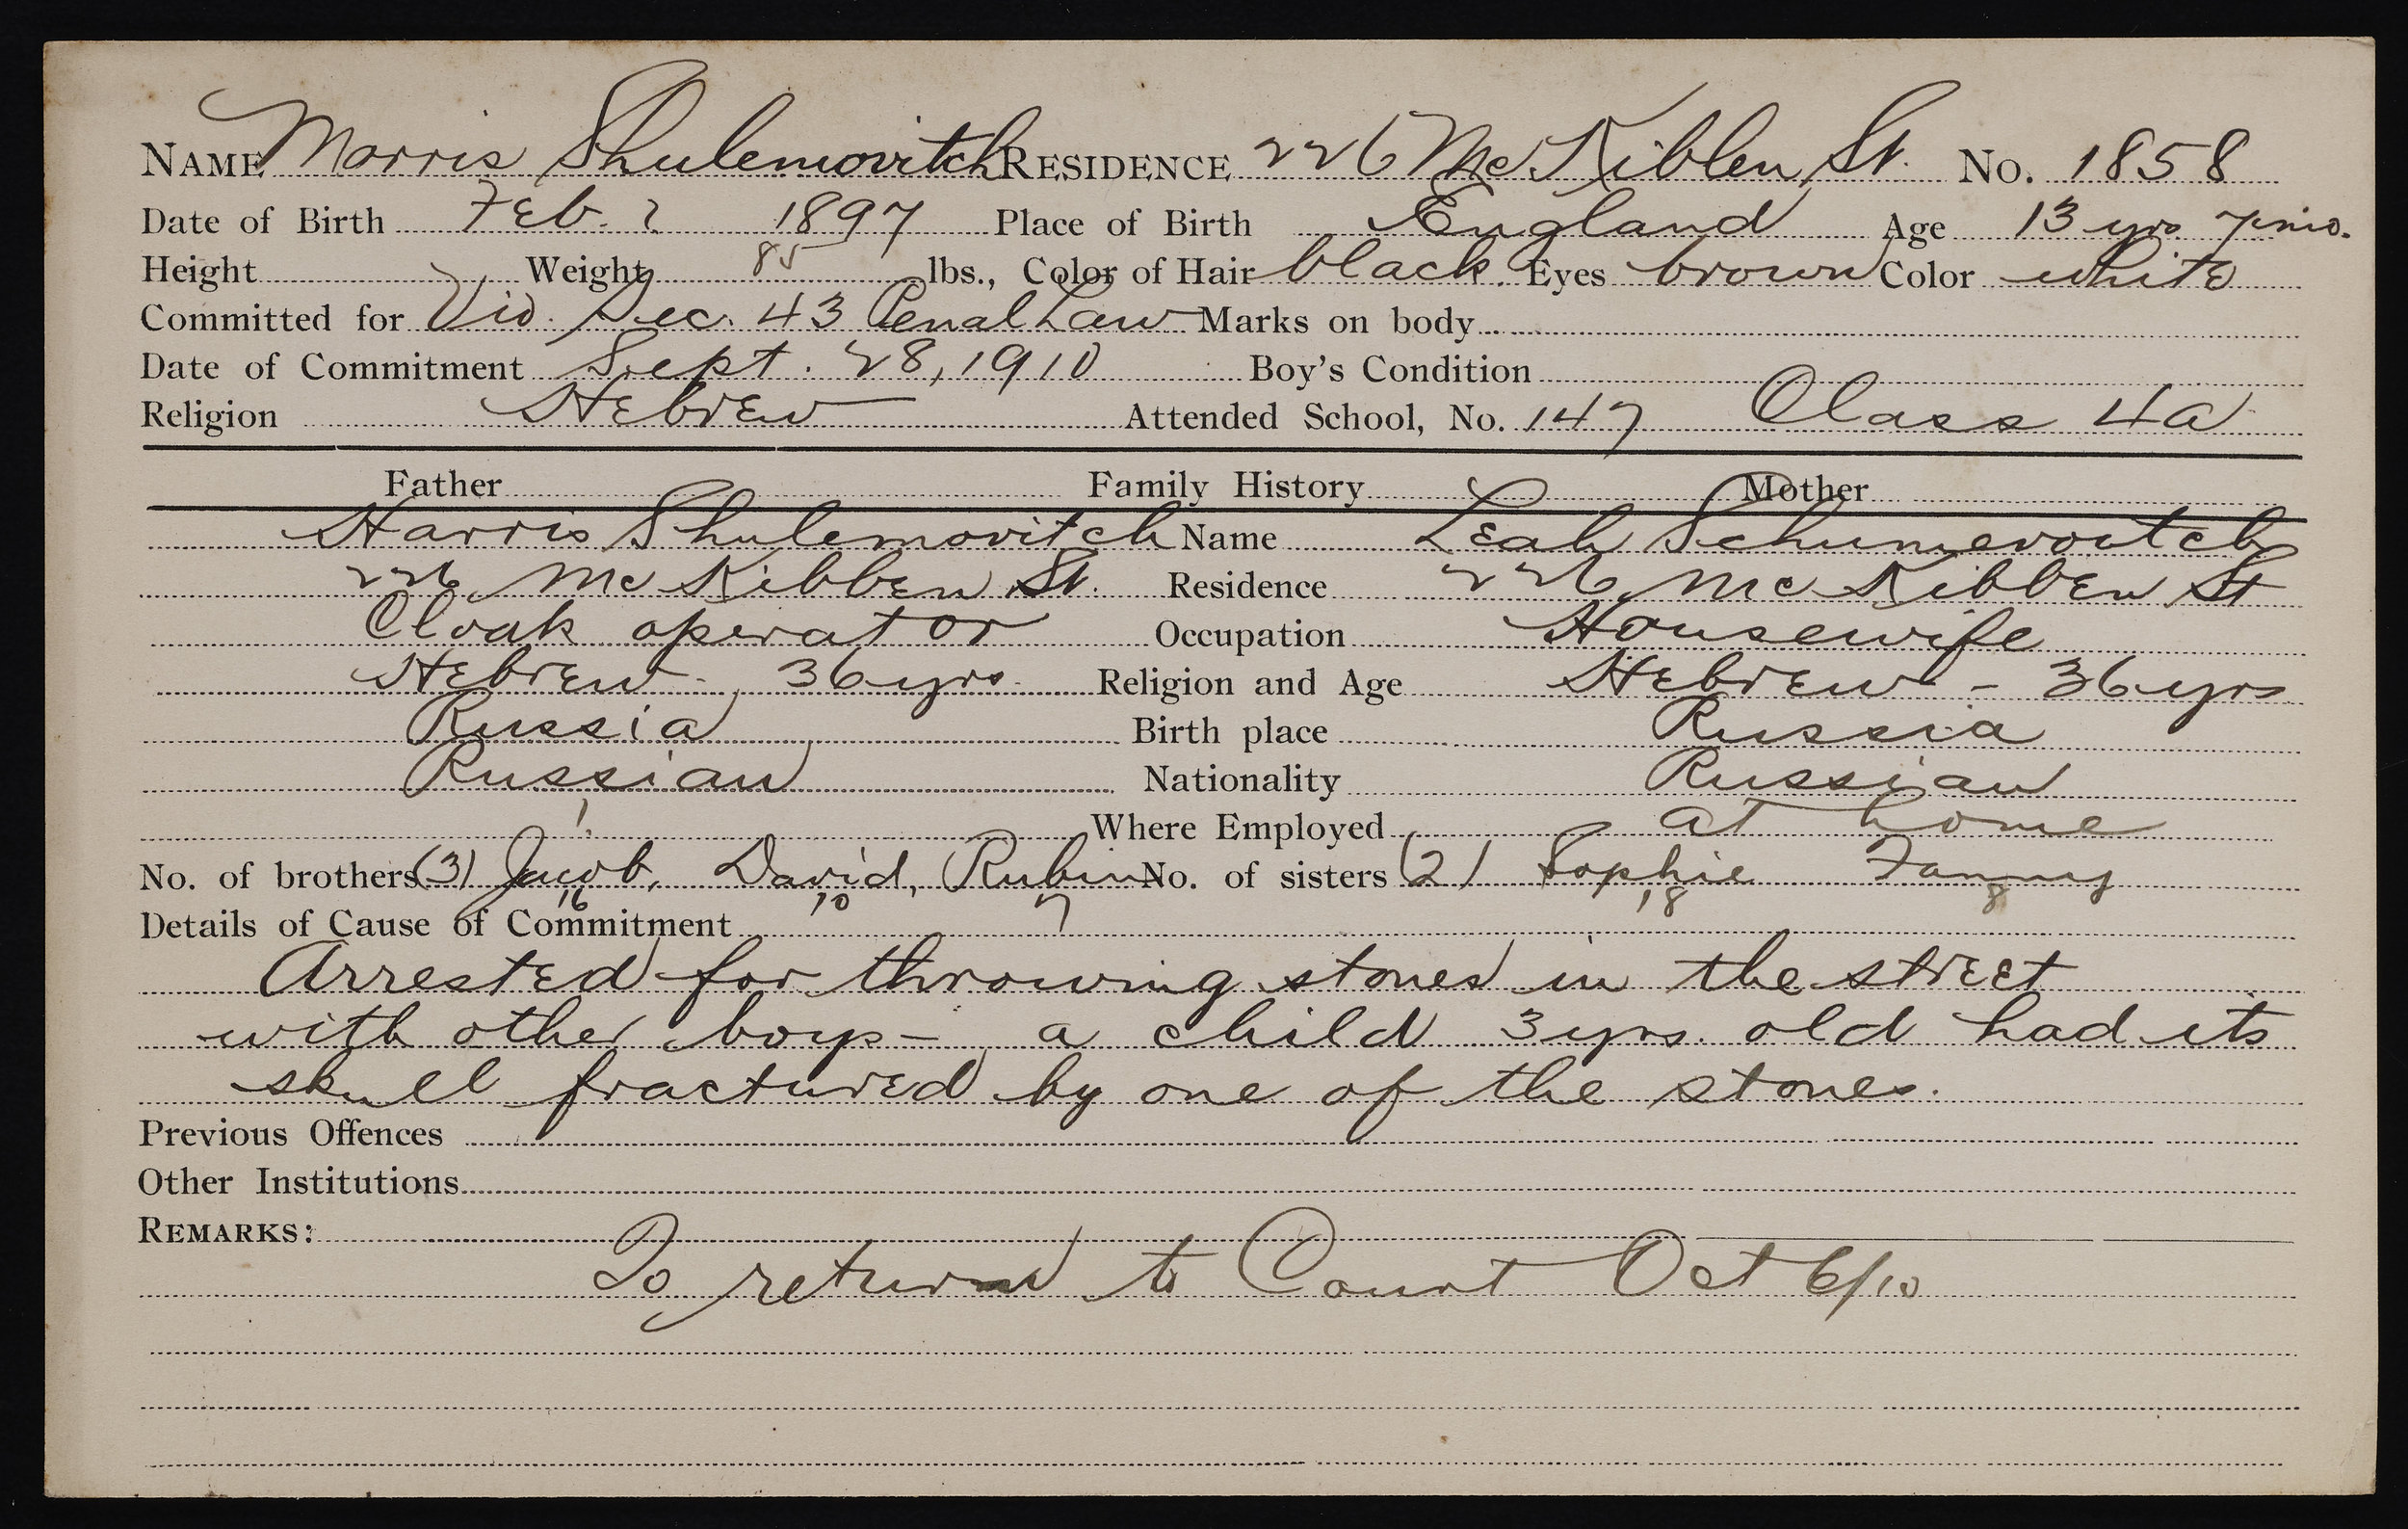 NAME Morris Shulemovitch RESIDENCE 226 McKiblen St. No. 1858
Date of Birth Feb. ? 1897 Place of Birth England Age 13 yrs 7 mo.
Height Weight 85 lbs., Color of Hair black. Eyes brown Color white
Committed for Vio. Sec. 43 Penal Law Marks on body
Date of Commitment Sept. 28, 1910 Boy's Condition
Religion Hebrew Attended School, No. 147 Class 4a
Father Family History Mother
Harris Shulemovitch Name Leah
226 McKibben St. Residence 226 McKibben St
Cloak operator Occupation Housewife
Hebrew - 36 yrs. Religion and Age Hebrew - 36 yrs
Russia Birth place Russia
Russian Nationality Russian
Where Employed at home
No. of brothers (3) Jacob, David, Rubin No. of sisters (2) Sophie Fanny
16 10 7 18 8
Details of Cause of Commitment
Arrested for throwing stones in the street
with other boys - a child 3 yrs. old had its
skull fractured by one of the stones.
Previous Offences
Other Institutions
REMARKS:
To return to Court Oct 6/10